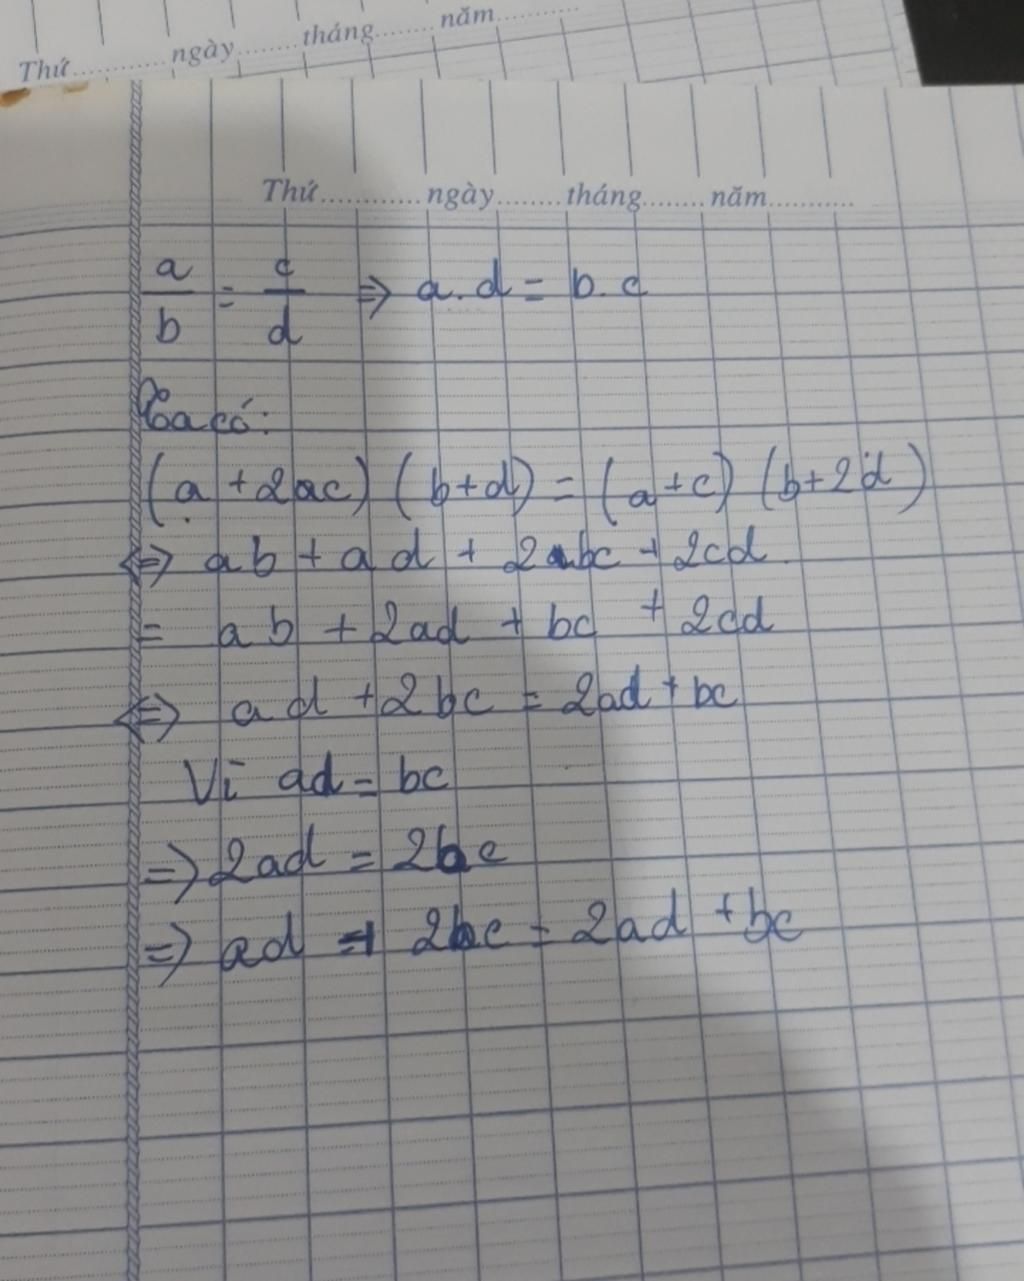 Thứ............ngày........tháng........năm...........
Thứ............ngày........tháng........năm...........
a/b = c/d ⇒ a.d = b.c
Ta có:
(a + 2ac) (b+d) = (a+c) (b+2d)
⇔ ab + ad + 2bc + 2cd
= ab + 2ad + bc + 2cd
⇔ ad + 2bc = 2ad + bc
Vì ad = bc
⇒ 2ad = 2bc
⇒ ad + 2bc = 2ad + bc